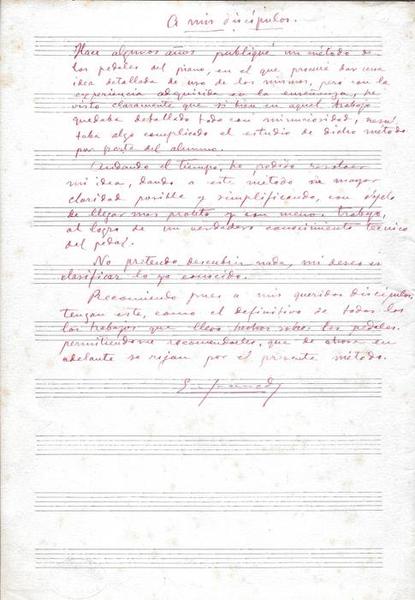 A mis discípulos.
Hace algunos años publiqué un método de
los pedales del piano, en el que procuré dar una
idea detallada de uso de los mismos, pero con la
experiencia adquirida en la enseñanza, he
visto claramente que si bien en aquel trabajo
quedaba detallado todo con minuciosidad, resul
taba algo complicado el estudio de dicho método
por parte del alumno.
Andando el tiempo, he podido
mi idea, dando a este método su mayor
claridad posible y simplificando, con objeto
de llegar mas pronto y con menos trabajo,
al logro de un verdadero conocimiento técnico
del pedal.
No pretendo descubrir nada, mi deseo es
clasificar lo ya conocido.
Recomiendo pues a mis queridos discípulos,
tengan este, como el definitivo de todos los
los trabajos que llevo hechos sobre los pedales.
permitiendome recomendarles, que de ahora en
adelante se rijan por el presente método.